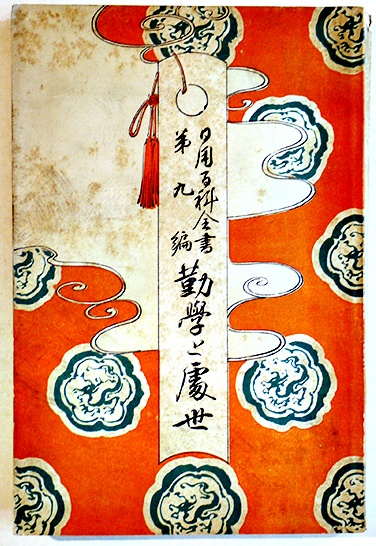 日用百科全書
第九編
勤學と處世